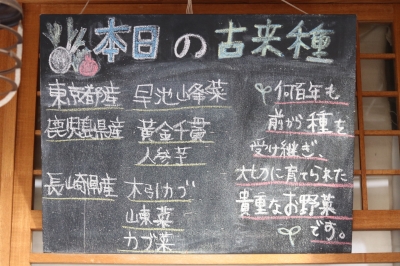 本日の古来種
東京都産 早池峰菜
鹿児島県産 黄金千貫
人参芋
長崎県産 木引カブ
山東菜
カブ菜
何百年も
前から種を
受け継ぎ、
大切に育てられた
貴重なお野菜
です。